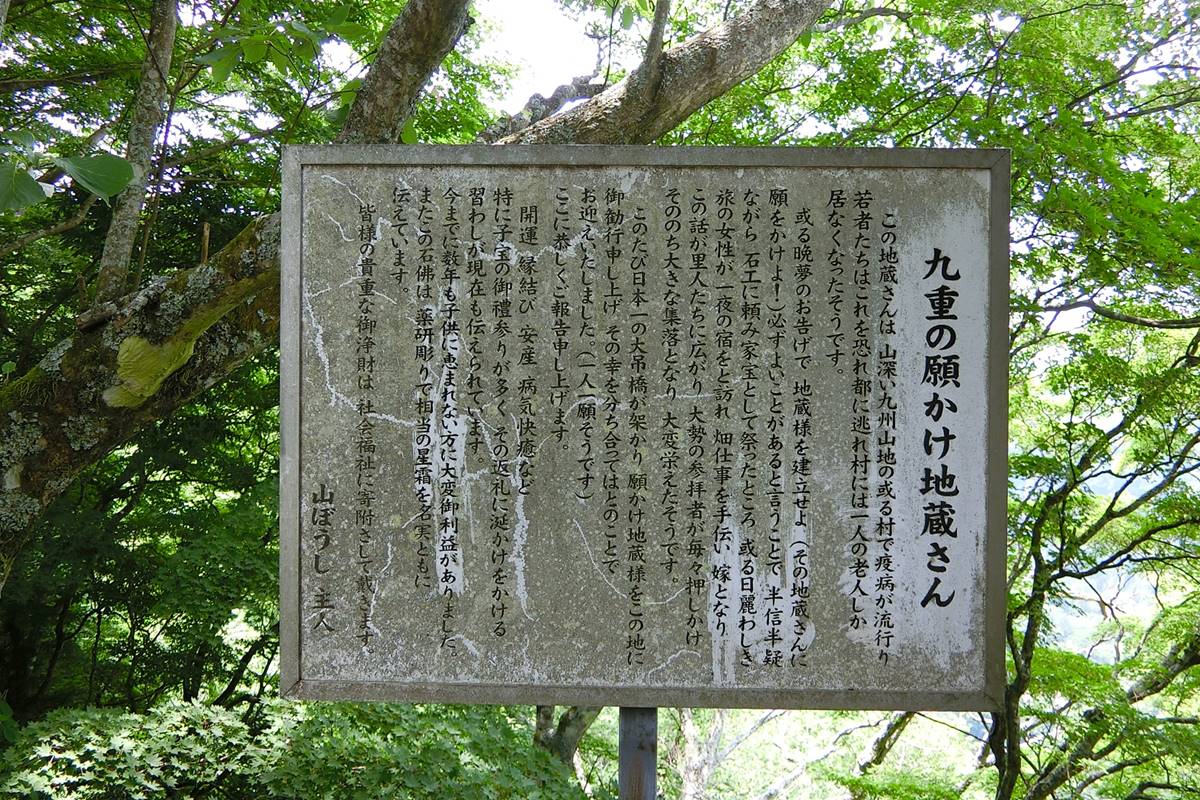 九重の願かけ地蔵さん
この地蔵さんは 山深い九州山地の或る村で疫病が流行り
若者たちはこれを恐れ都に逃れ村には一人の老人しか
居なくなったそうです。
或る晩夢のお告げで 地蔵様を建立せよ（その地蔵さんに
願をかけよ！）必ずよいことがあると言うことで 半信半疑
ながら 石工に頼み家宝として祭ったところ 或る日麗わしき
旅の女性が 一夜の宿をと訪れ 畑仕事を手伝い 嫁となり
この話が里人たちに広がり 大勢の参拝者が毎々押しかけ
そののち大きな集落となり 大変栄えたそうです。
このたび日本一の大吊橋が架かり 願かけ地蔵様をこの地に
御勧行申し上げ その幸を分ち合ってはとのことで
お迎えいたしました。（一人一願そうです）
ここに恭しくご報告申し上げます。
開運 縁結び 安産 病気快癒など
特に子宝の御禮参りが多く その返礼に涎かけをかける
習わしが現在も伝えられています。
今までに数年も子供に恵まれない方に大変御利益がありました。
またこの石佛は 薬研彫りで相当の星霜を名実ともに
伝えています。
皆様の貴重な御浄財は 社会福祉に寄附さして戴きます。
山ぼうし 主人